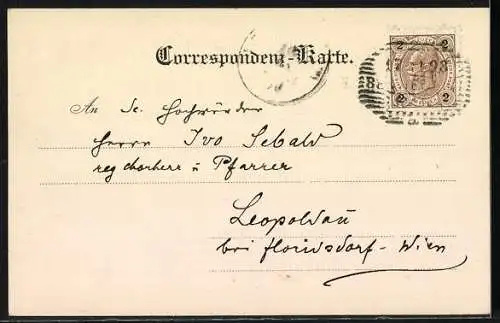 Correspondenz-Karte.
2 2
2 2
An Se. Hochwürden
Herrn Ivo Sebald
reg. Chorherr u Pfarrer
Leopoldau
bei Floridsdorf-Wien